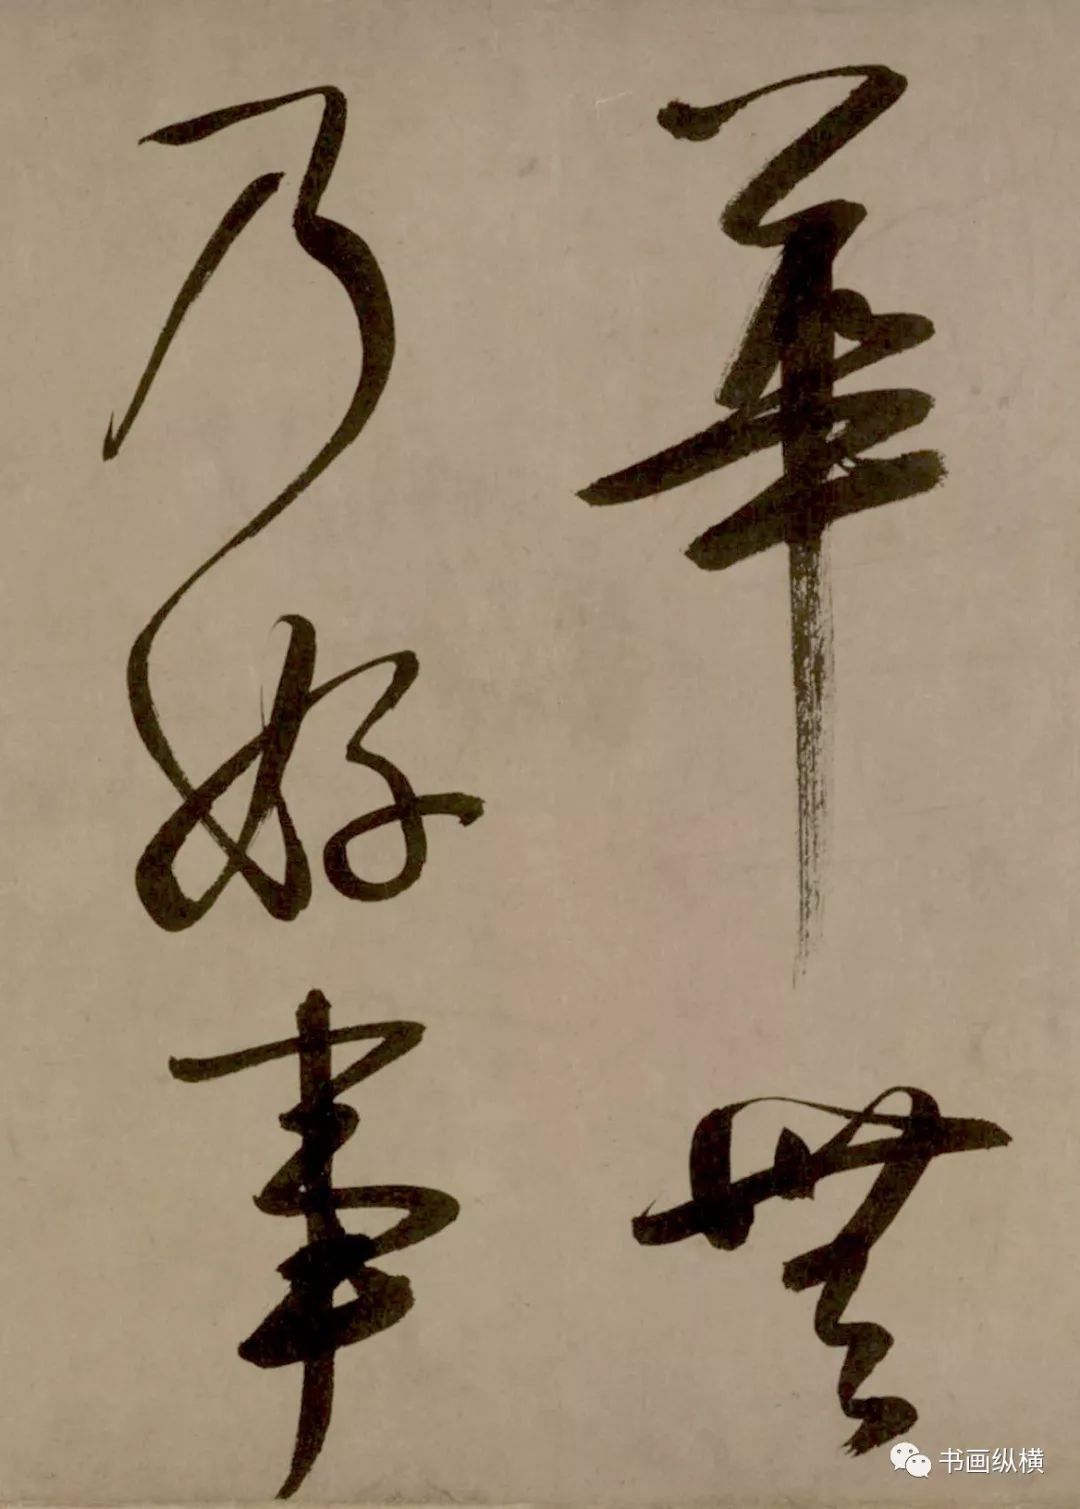 華無
乃好事
书画纵横